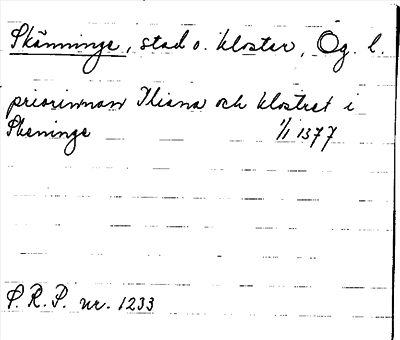 Skänninge, stad o. kloster, Ög. l.
priorinnan Iliana och klostret i
Skeninge 1/1 1377
S. R. P. nr. 1233